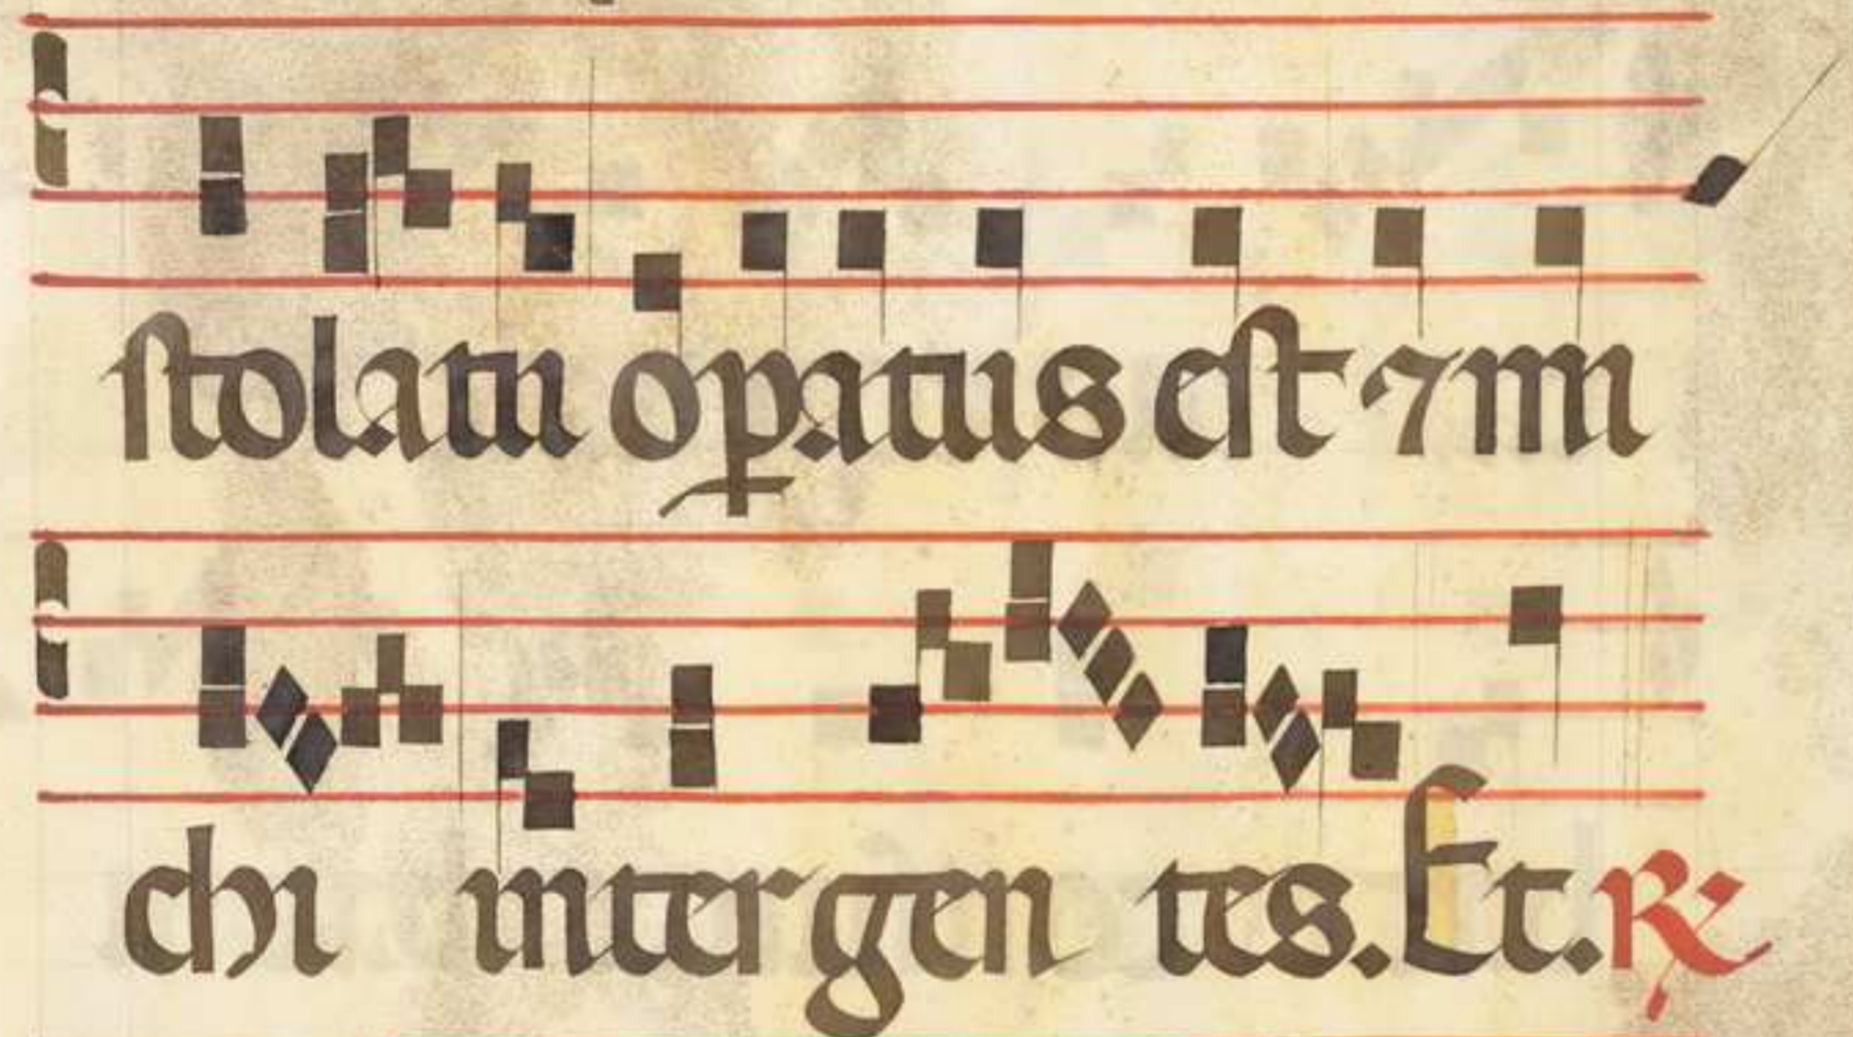 ſtolatū oꝑatus eſt ⁊ mi
chi inter gen tes. Et. ℟